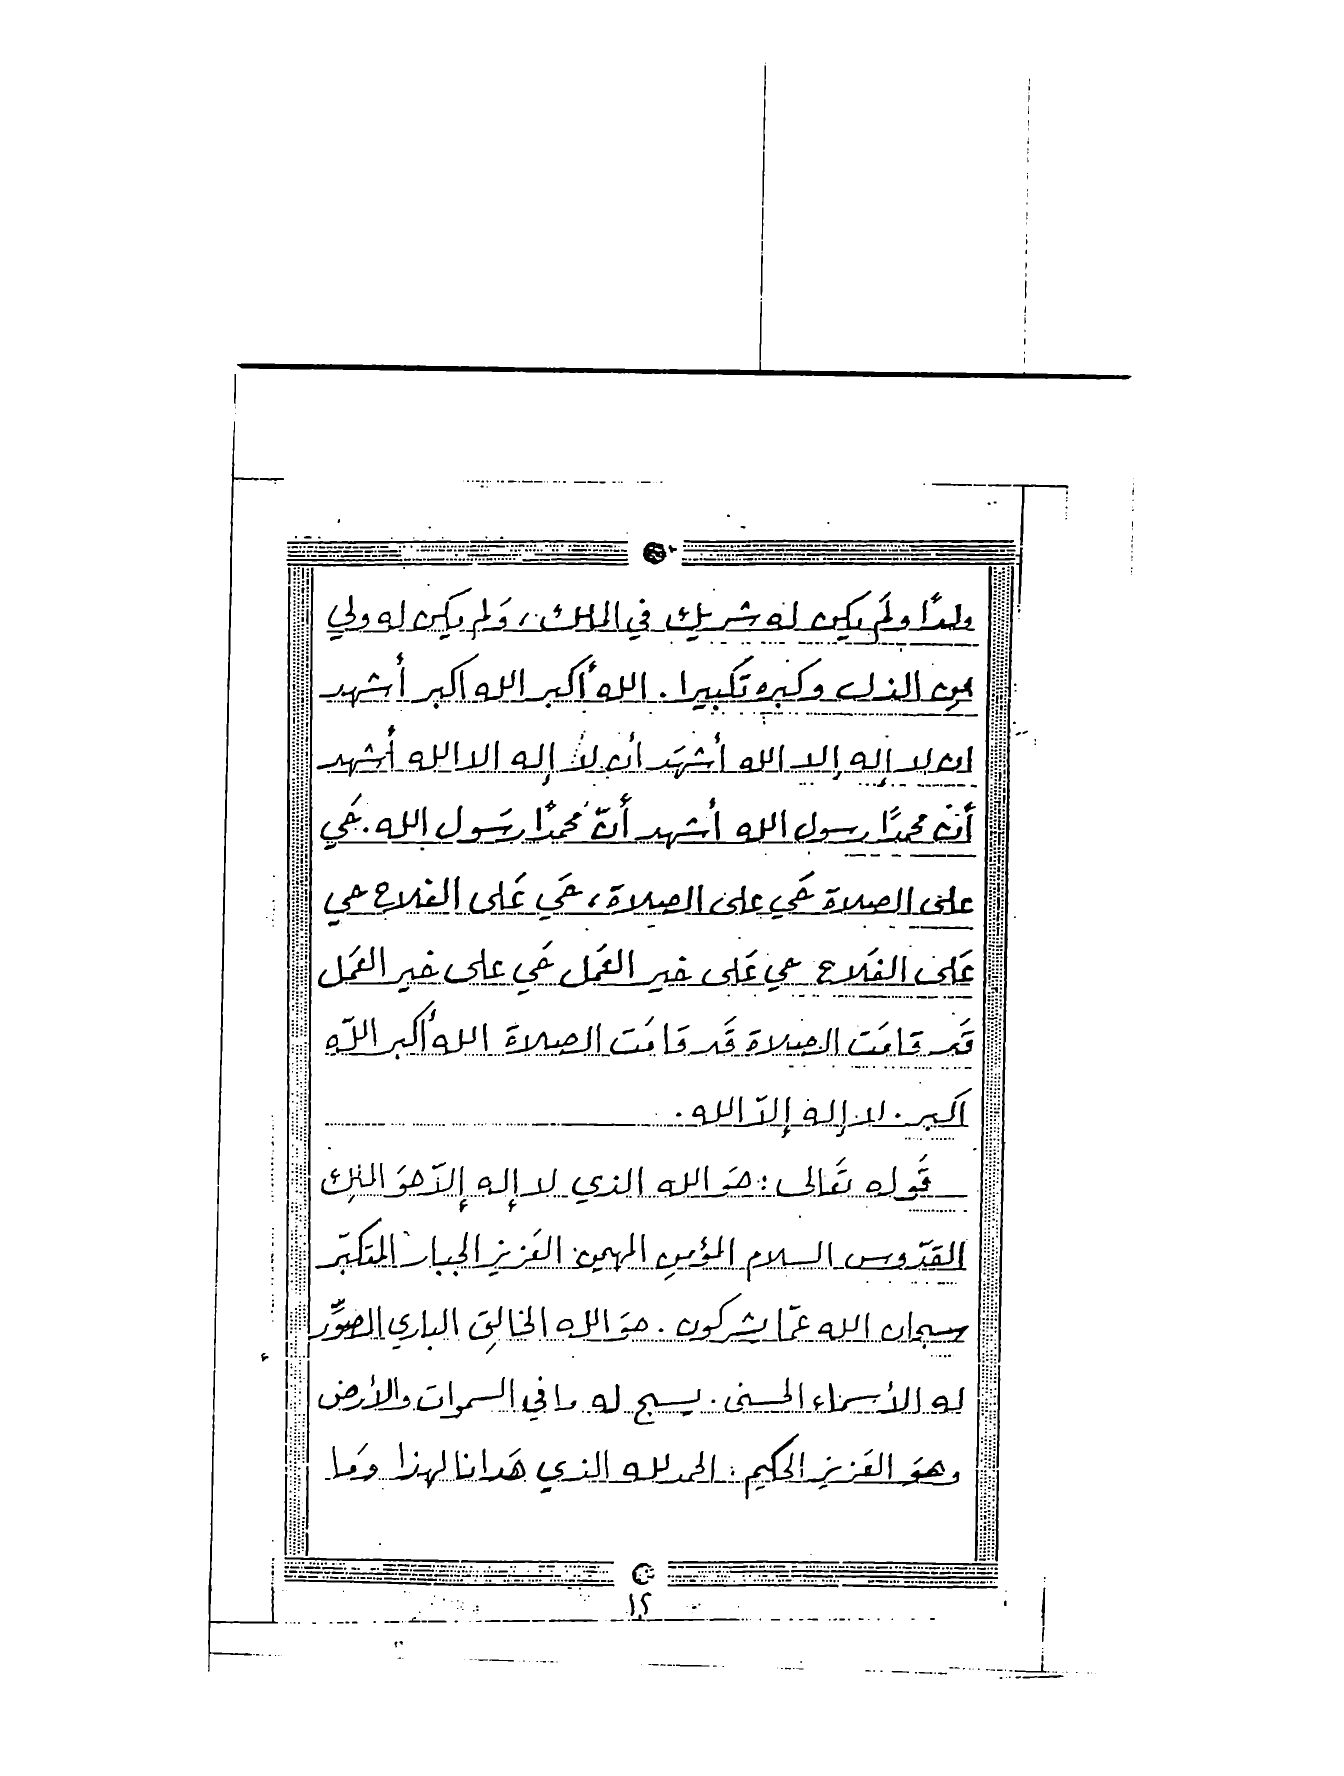 ولدًا ولَم يكن له شريك في الملك، وَلم يكن له ولي
من الذل وكبره تكبيرا. الله أكبر الله اكبر أشهد
ان لا إله إلا الله أشهَد أن لا إله الا الله أشهد
أنّ محمدًا رسول الله أشهد أنّ محمدًا رسَول الله. حَي
على الصلاة حَي على الصلاة، حَي عَلى الفلاح حي
عَلى الفَلاح حي عَلى خير العَمل حَي على خير العَمل
قَد قامَت الصلاة قَد قامَت الصلاة الله أكبر اللّه
اكبر. لا إله إلاّ الله.
قَوله تعَالى: هوَ الله الذي لا إله إلاّ هوَ الملك
القدّوس السلام المؤمنِ المهيمن العَزيز الجبار المتكبّر
سبحان الله عمّا يشركون. هوَ الله الخالق الباري المصوِّر
له الأسماء الحسنى. يسبح له ما في السموات والأرض
وهوَ العَزيز الحكيم: الحمد لله الذي هَدانا لهذا وَما
١٢